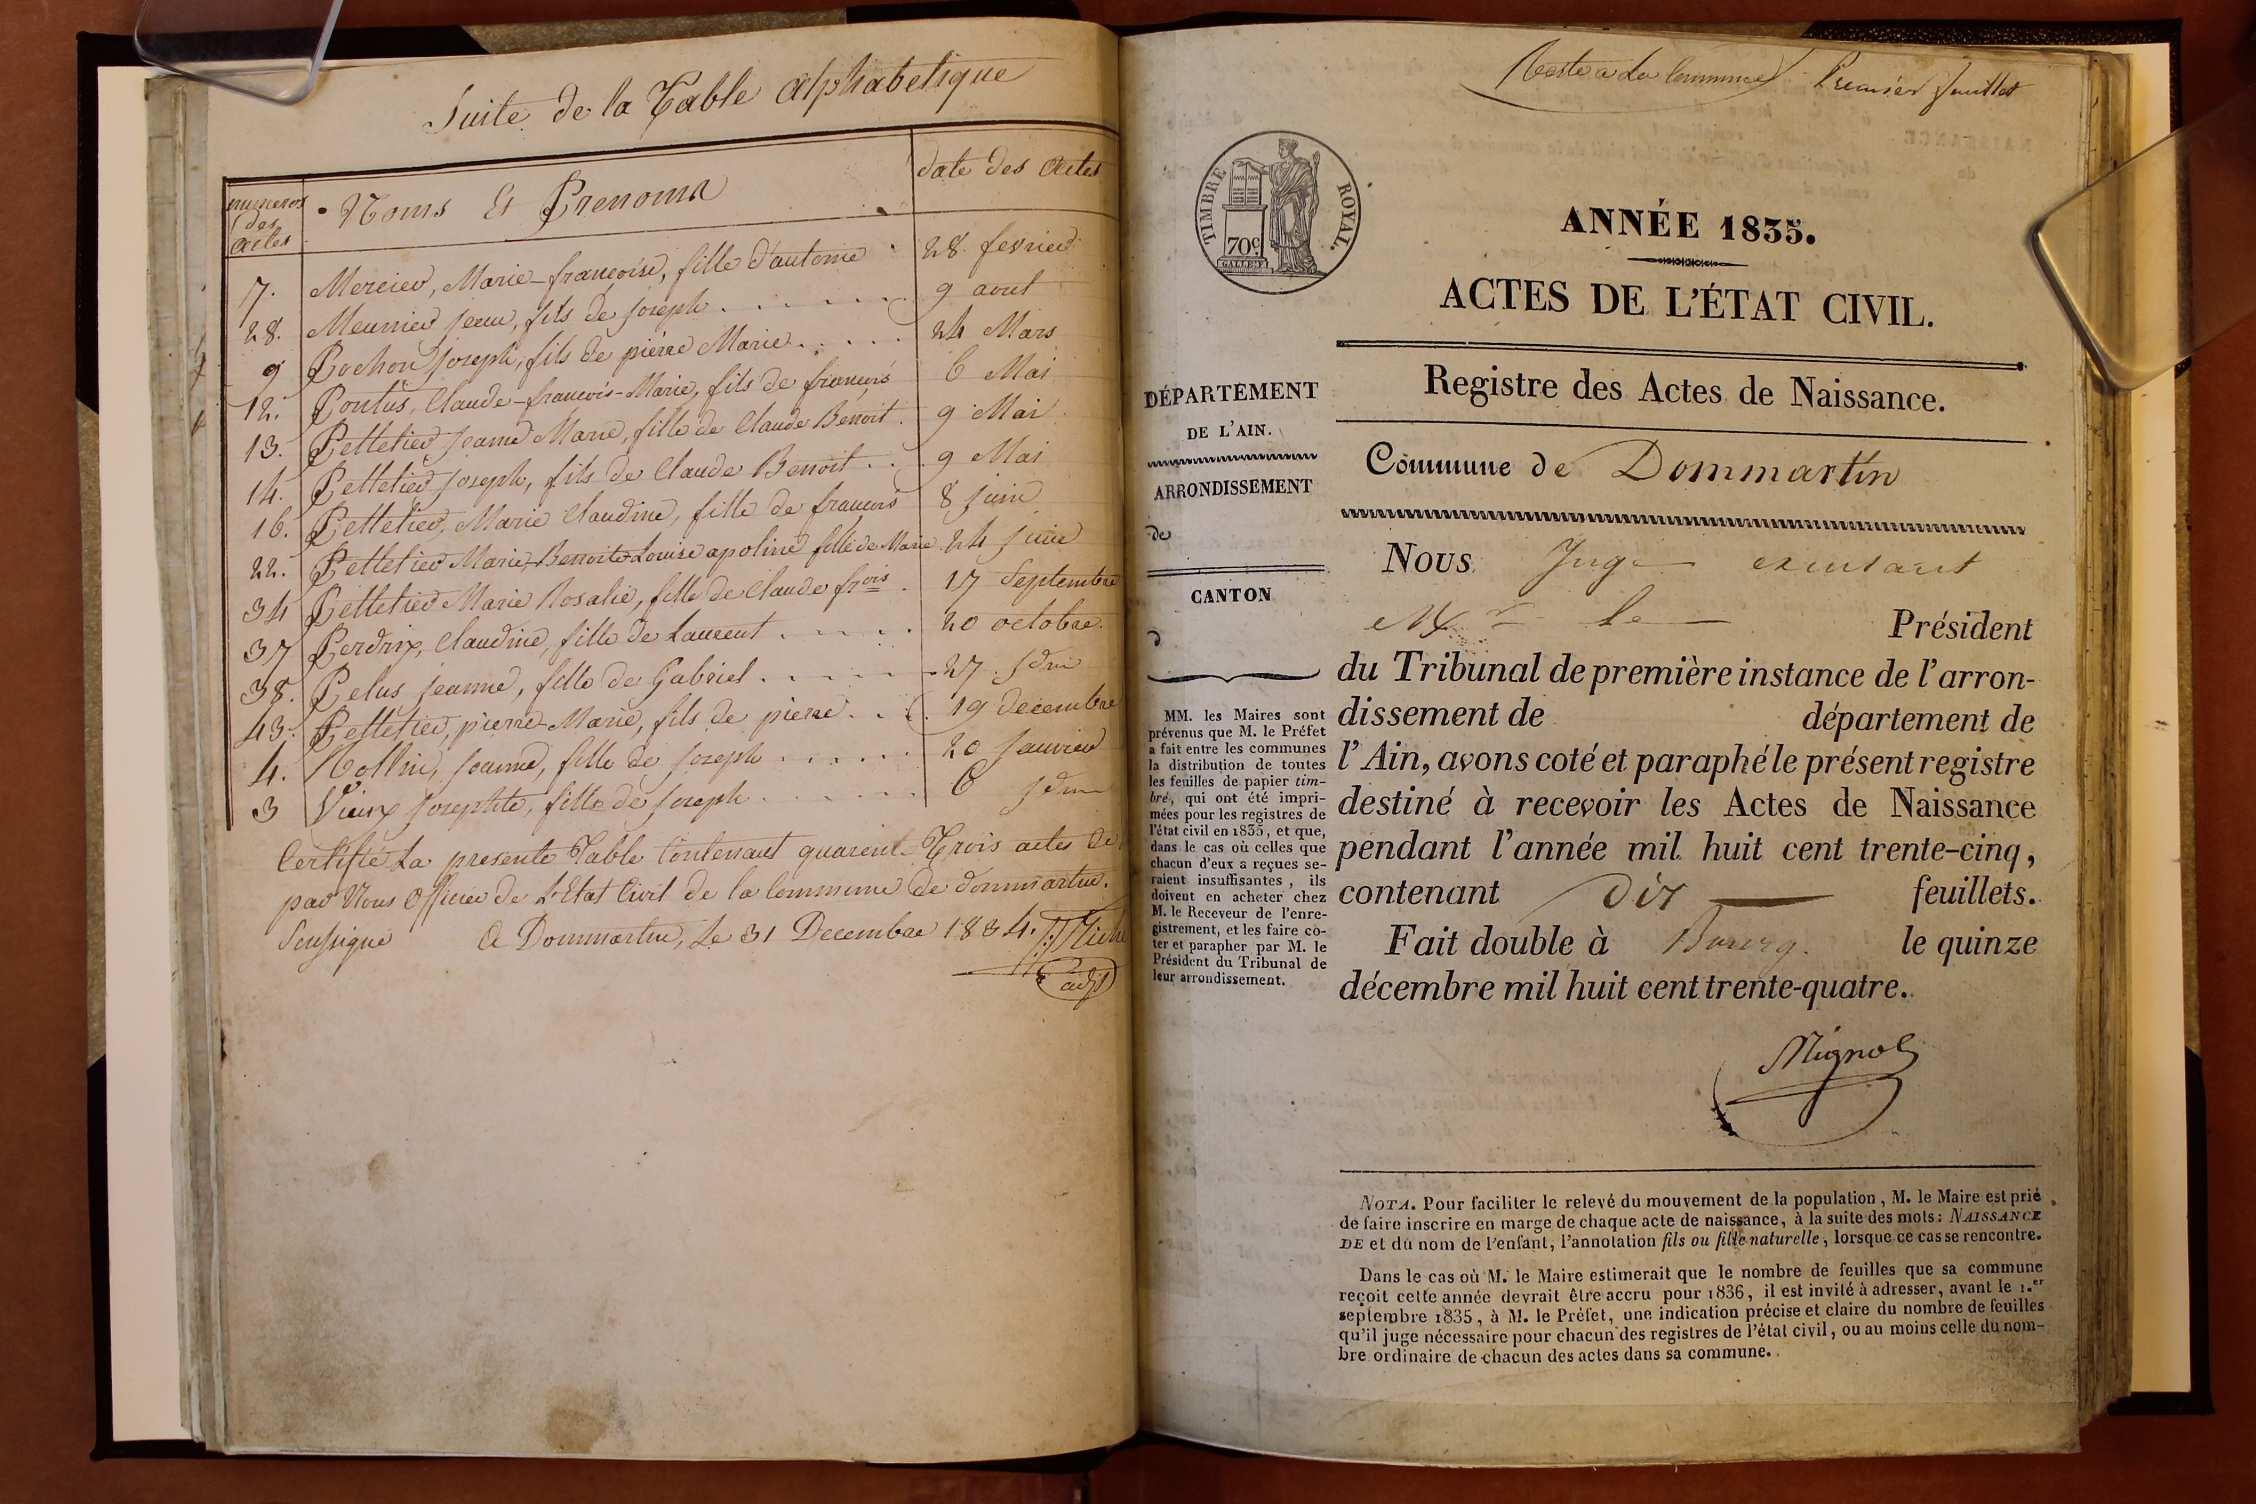 Suite de la Table alphabetique
numeros
des
actes
Noms Et Prenoms
date des actes
7. Mercier, Marie-francoise, fille d'antoine 28 fevrier
28. Meunier jean, fils de joseph 9 aout
9 Pochon joseph, fils de pierre Marie 24 Mars
12. Pontus, Claude-francois-Marie, fils de francois 6 Mai
13. Pelletier jeanne Marie, fille de Claude Benoit 9 Mai
14. Pelletier joseph, fils de Claude Benoit 9 Mai
16. Pelletier, Marie Claudine, fille de francois 8 juin
22. Pelletier Marie, Benoite Louise apoline fille de Marie 24 juin
34 Pelletier Marie Rosalie, fille de Claude frois 17 Septembre
37 Perdrix, Claudine, fille de Laurent 20 octobre
38. Pelus jeanne, fille de Gabriel 27 jdm
43. Pelletier, pierre-Marie, fils de pierre 19 decembre
4. Rollin, jeanne, fille de joseph 20 janvier
3 Vieux josephte, fille de joseph 6 jdm
Certifié La presente Table Contenant quarente-Trois actes
par Nous officier de L'Etat Civil de la Commune de dommartin.
Soussigné A Dommartin, Le 31 Decembre 1834.
adjt
Reste a La Commune Premier feuillet
TIMBRE ROYAL.
70c.
ANNÉE 1835.
ACTES DE L'ÉTAT CIVIL.
Registre des Actes de Naissance.
Commune de Dommartin
DÉPARTEMENT
DE L'AIN.
ARRONDISSEMENT
de
CANTON
d
MM. les Maires sont
prévenus que M. le Préfet
a fait entre les communes
la distribution de toutes
les feuilles de papier tim-
bré, qui ont été impri-
mées pour les registres de
l'état civil en 1835, et que,
dans le cas où celles que
chacun d'eux a reçues se-
raient insuffisantes, ils
doivent en acheter chez
M. le Receveur de l'enre-
gistrement, et les faire co-
ter et parapher par M. le
Président du Tribunal de
leur arrondissement.
Nous Juge
Mr le Président
du Tribunal de première instance de l'arron-
dissement de département de
l'Ain, avons coté et paraphé le présent registre
destiné à recevoir les Actes de Naissance
pendant l'année mil huit cent trente-cinq,
contenant dix feuillets.
Fait double à Bourg. le quinze
décembre mil huit cent trente-quatre.
Mignot
NOTA. Pour faciliter le relevé du mouvement de la population, M. le Maire est prié
de faire inscrire en marge de chaque acte de naissance, à la suite des mots: NAISSANCE
DE et du nom de l'enfant, l'annotation fils ou fille naturelle, lorsque ce cas se rencontre.
Dans le cas où M. le Maire estimerait que le nombre de feuilles que sa commune
reçoit cette année devrait être accru pour 1836, il est invité à adresser, avant le 1.er
septembre 1835, à M. le Préfet, une indication précise et claire du nombre de feuilles
qu'il juge nécessaire pour chacun des registres de l'état civil, ou au moins celle du nom-
bre ordinaire de chacun des actes dans sa commune.